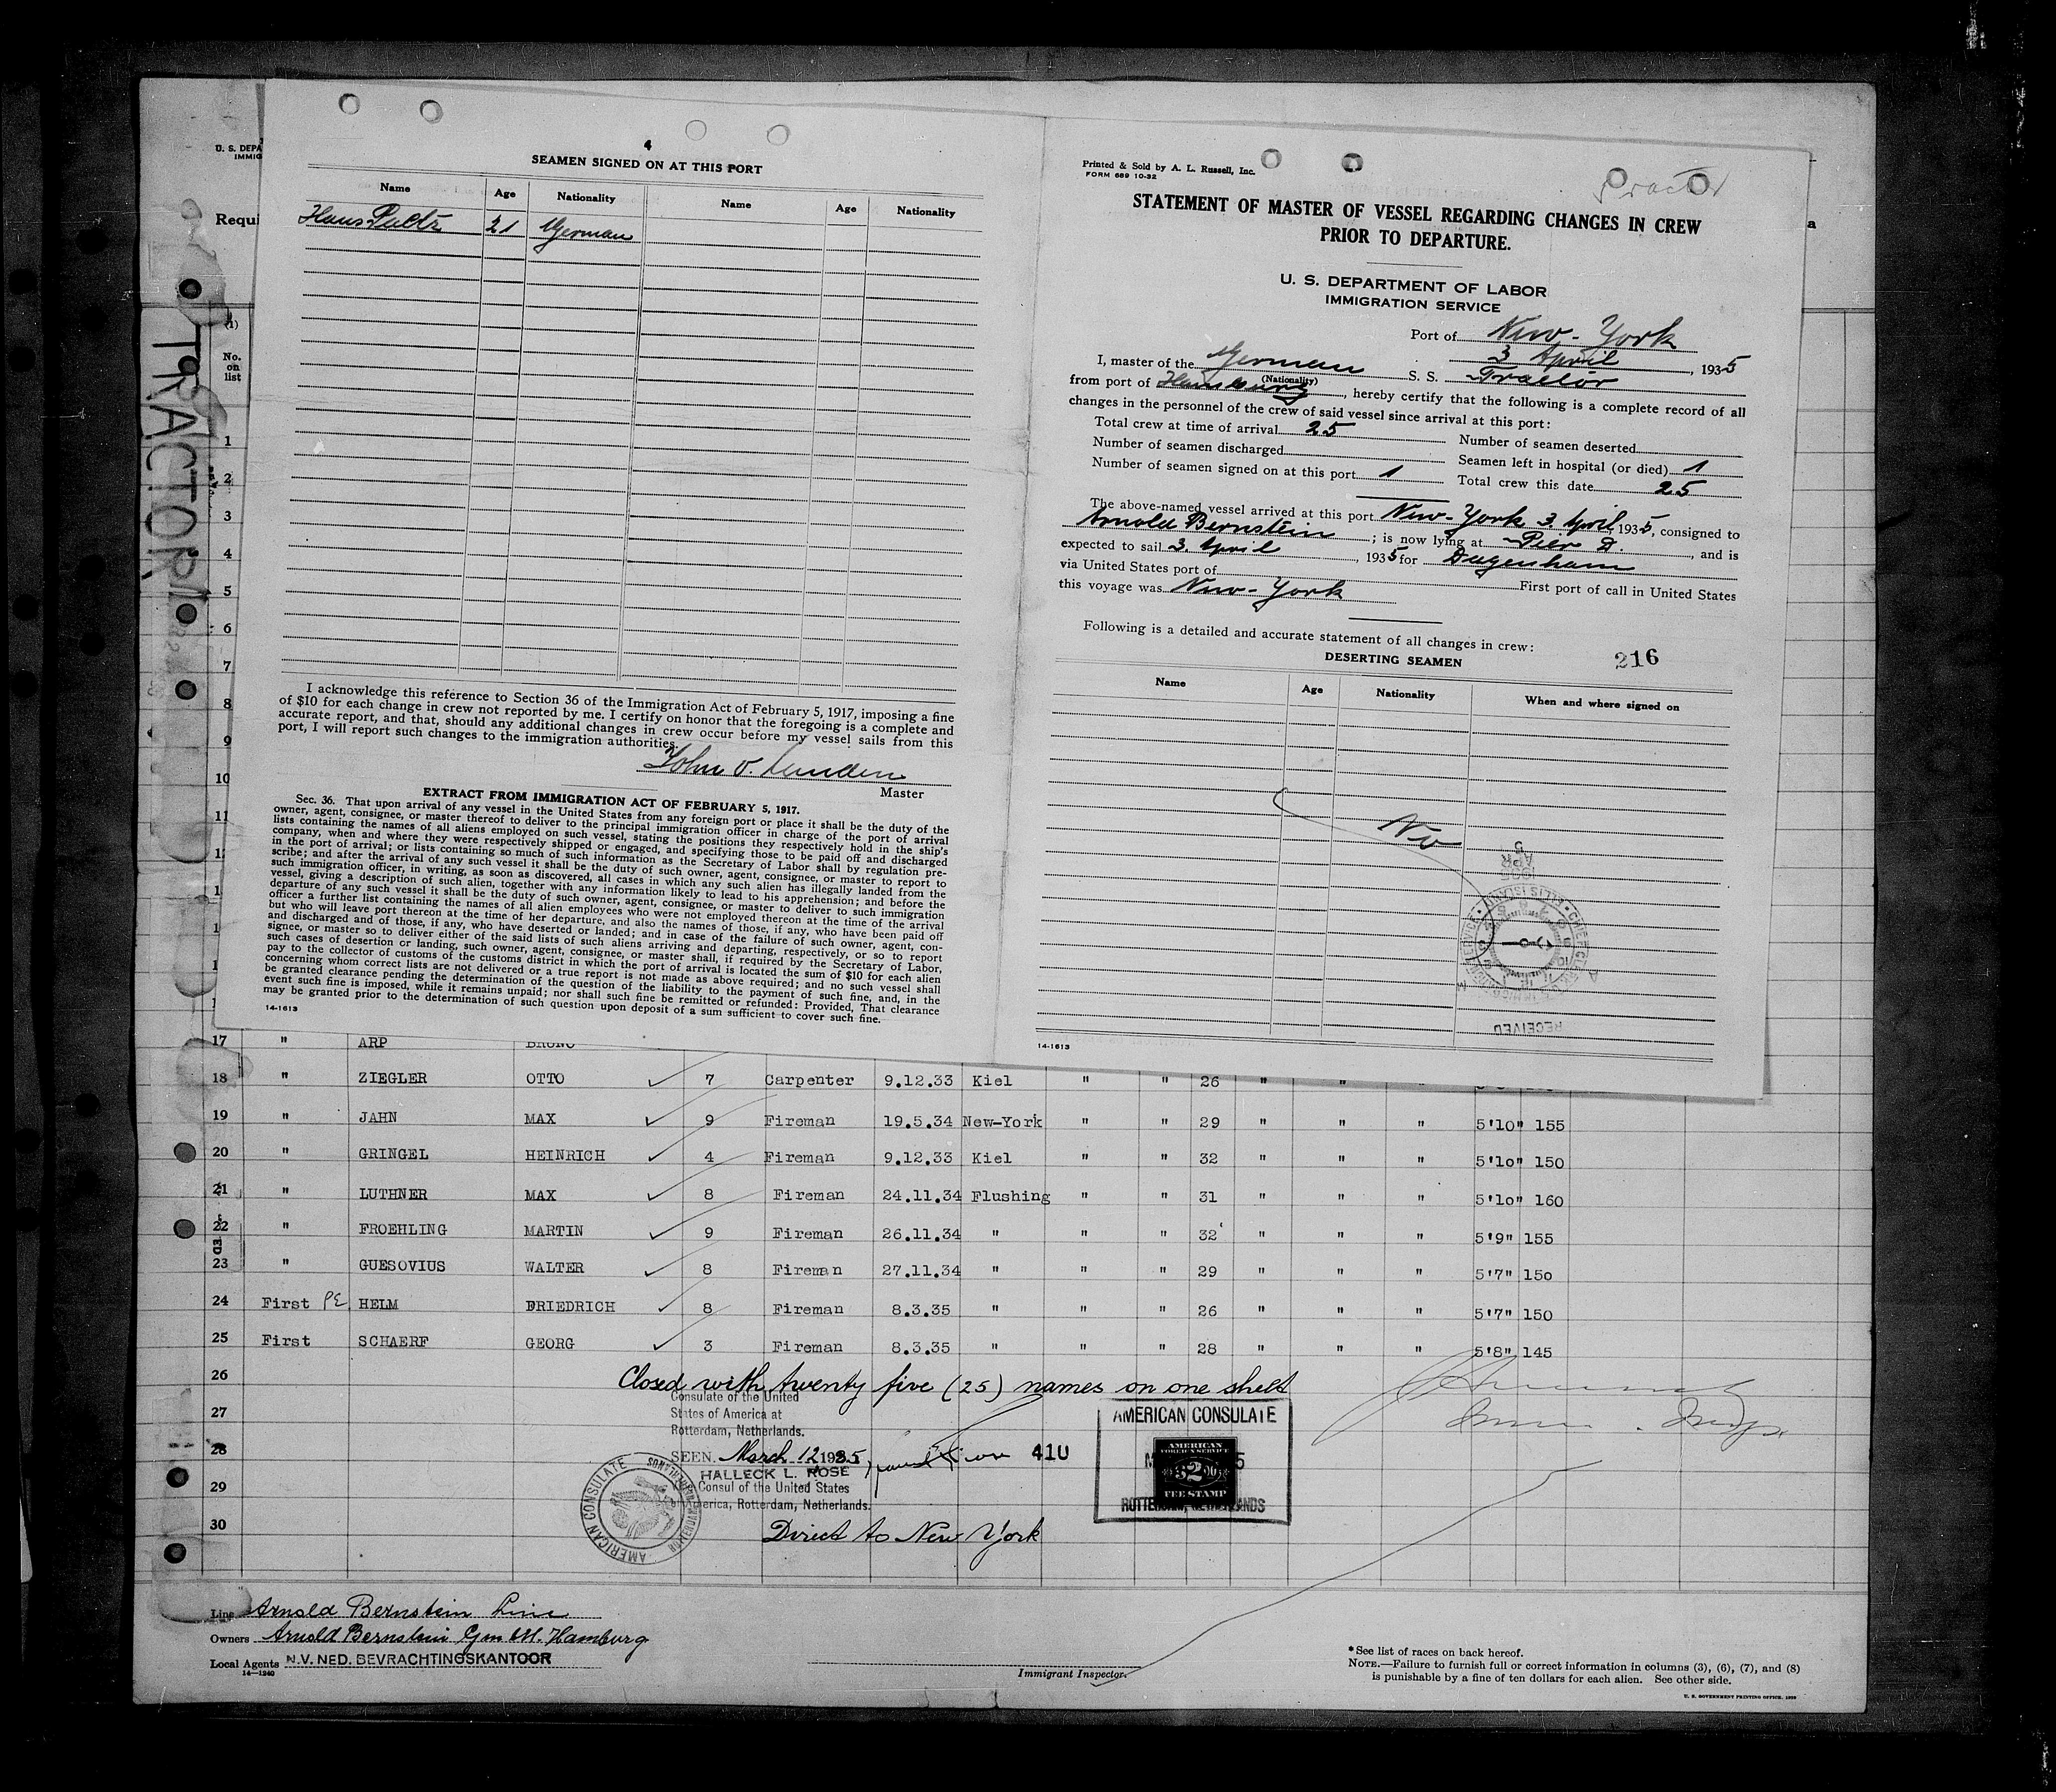 U. S. DEPA
IMMIG
Requi
a
TRACTOR
(1)
No.
on
list
4
SEAMEN SIGNED ON AT THIS PORT
Name Age Nationality Name Age Nationality
Hans 21 German
I acknowledge this reference to Section 36 of the Immigration Act of February 5, 1917, imposing a fine
of $10 for each change in crew not reported by me. I certify on honor that the foregoing is a complete and
accurate report, and that, should any additional changes in crew occur before my vessel sails from this
port, I will report such changes to the immigration authorities.
John v.
Master
EXTRACT FROM IMMIGRATION ACT OF FEBRUARY 5, 1917.
Sec. 36. That upon arrival of any vessel in the United States from any foreign port or place it shall be the duty of the
owner, agent, consignee, or master thereof to deliver to the principal immigration officer in charge of the port of arrival
lists containing the names of all aliens employed on such vessel, stating the positions they respectively hold in the ship's
company, when and where they were respectively shipped or engaged, and specifying those to be paid off and discharged
in the port of arrival; or lists containing so much of such information as the Secretary of Labor shall by regulation pre-
scribe; and after the arrival of any such vessel it shall be the duty of such owner, agent, consignee, or master to report to
such immigration officer, in writing, as soon as discovered, all cases in which any such alien has illegally landed from the
vessel, giving a description of such alien, together with any information likely to lead to his apprehension; and before the
departure of any such vessel it shall be the duty of such owner, agent, consignee, or master to deliver to such immigration
officer a further list containing the names of all alien employees who were not employed thereon at the time of the arrival
but who will leave port thereon at the time of her departure, and also the names of those, if any, who have been paid off
and discharged and of those, if any, who have deserted or landed; and in case of the failure of such owner, agent, con-
signee, or master so to deliver either of the said lists of such aliens arriving and departing, respectively, or so to report
such cases of desertion or landing, such owner, agent, consignee, or master shall, if required by the Secretary of Labor,
pay to the collector of customs of the customs district in which the port of arrival is located the sum of $10 for each alien
concerning whom correct lists are not delivered or a true report is not made as above required; and no such vessel shall
be granted clearance pending the determination of the question of the liability to the payment of such fine, and, in the
event such fine is imposed, while it remains unpaid; nor shall such fine be remitted or refunded: Provided, That clearance
may be granted prior to the determination of such question upon deposit of a sum sufficient to cover such fine.
14-1613
Printed & Sold by A. L. Russell, Inc.
FORM 689 10-32
Tractor
STATEMENT OF MASTER OF VESSEL REGARDING CHANGES IN CREW
PRIOR TO DEPARTURE.
U. S. DEPARTMENT OF LABOR
IMMIGRATION SERVICE
Port of New-York
3 April, 1935
I, master of the German S. S. Tractor
(Nationality)
from port of Hamburg, hereby certify that the following is a complete record of all
changes in the personnel of the crew of said vessel since arrival at this port:
Total crew at time of arrival 25 Number of seamen deserted
Number of seamen discharged Seamen left in hospital (or died) 1
Number of seamen signed on at this port 1 Total crew this date 25
The above-named vessel arrived at this port New-York 3. April, 1935, consigned to
Arnold Bernstein; is now lying at Pier D., and is
expected to sail 3. April, 1935 for Dagenham
via United States port of First port of call in United States
this voyage was New-York
Following is a detailed and accurate statement of all changes in crew:
DESERTING SEAMEN 216
Name Age Nationality When and where signed on
No
5
APR
1935
ELLIS ISLAND
RECEIVED
14-1613
1
2
3
4
5
6
7
8
9
10
11
17 " ARP BRUNO
18 " ZIEGLER OTTO 7 Carpenter 9.12.33 Kiel " " 26 " " "
19 " JAHN MAX 9 Fireman 19.5.34 New-York " " 29 " " " 5'10" 155
20 " GRINGEL HEINRICH 4 Fireman 9.12.33 Kiel " " 32 " " " 5'10" 150
21 " LUTHNER MAX 8 Fireman 24.11.34 Flushing " " 31 " " " 5'10" 160
22 " FROEHLING MARTIN 9 Fireman 26.11.34 " " " 32 " " " 5'9" 155
23 " GUESOVIUS WALTER 8 Fireman 27.11.34 " " " 29 " " " 5'7" 150
24 First PE HELM FRIEDRICH 8 Fireman 8.3.35 " " " 26 " " " 5'7" 150
25 First SCHAERF GEORG 3 Fireman 8.3.35 " " " 28 " " " 5'8" 145
26 Closed with twenty five (25) names on one sheet
Consulate of the United
27 States of America at
Rotterdam, Netherlands.
28 SEEN March 12 1935 410
HALLECK L. ROSE
29 Consul of the United States
America, Rotterdam, Netherlands.
30 Direct to New York
AMERICAN CONSULATE
AMERICAN CONSULATE
AMERICAN
FOREIGN SERVICE
$2.00
FEE STAMP
ROTTERDAM, NETHERLANDS
Line Arnold Bernstein Line
Owners Arnold Bernstein Gmbh. Hamburg
Local Agents N.V. NED. BEVRACHTINGSKANTOOR
14-1240
Immigrant Inspector.
*See list of races on back hereof.
NOTE.—Failure to furnish full or correct information in columns (3), (6), (7), and (8)
is punishable by a fine of ten dollars for each alien. See other side.
U. S. GOVERNMENT PRINTING OFFICE.